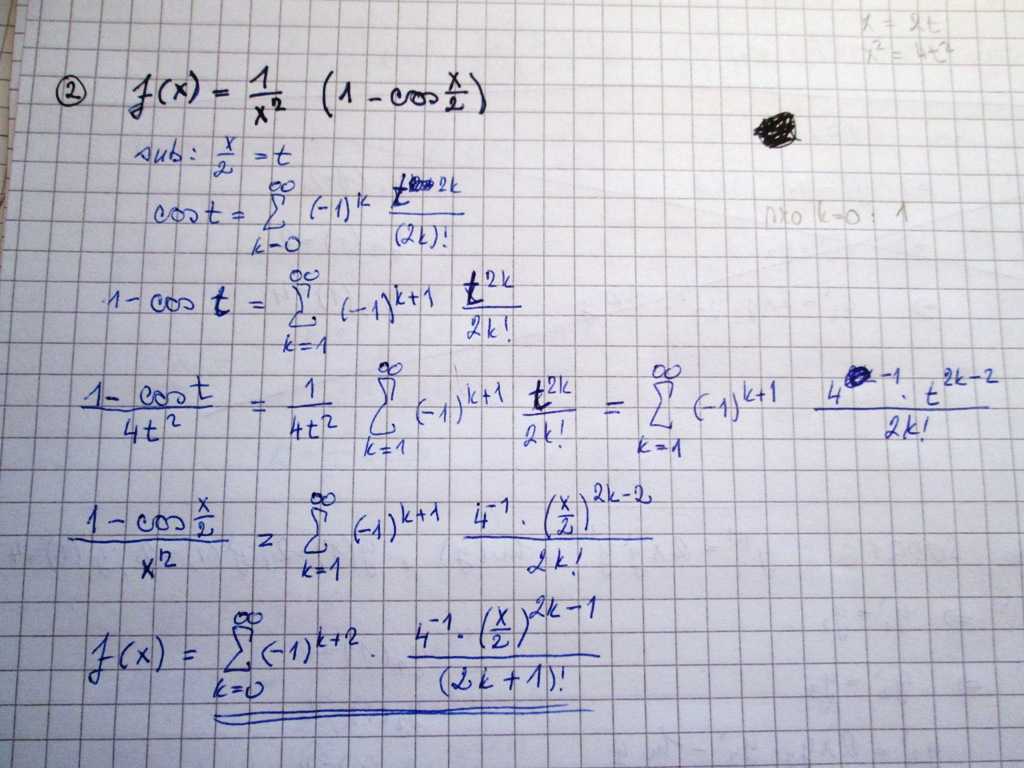 x = 2t
x² = 4t²
② f(x) = 1/x² (1 - cos x/2)
sub: x/2 = t
cos t = ∑_{k=0}^{∞} (-1)^k t^{2k}/(2k)!
k=0: 1
1 - cos t = ∑_{k=1}^{∞} (-1)^{k+1} t^{2k}/2k!
(1 - cos t)/4t² = 1/4t² ∑_{k=1}^{∞} (-1)^{k+1} t^{2k}/2k! = ∑_{k=1}^{∞} (-1)^{k+1} 4^{-1} · t^{2k-2}/2k!
(1 - cos x/2)/x² = ∑_{k=1}^{∞} (-1)^{k+1} 4^{-1} · (x/2)^{2k-2}/2k!
f(x) = ∑_{k=0}^{∞} (-1)^{k+2} · 4^{-1} · (x/2)^{2k-1}/(2k+1)!